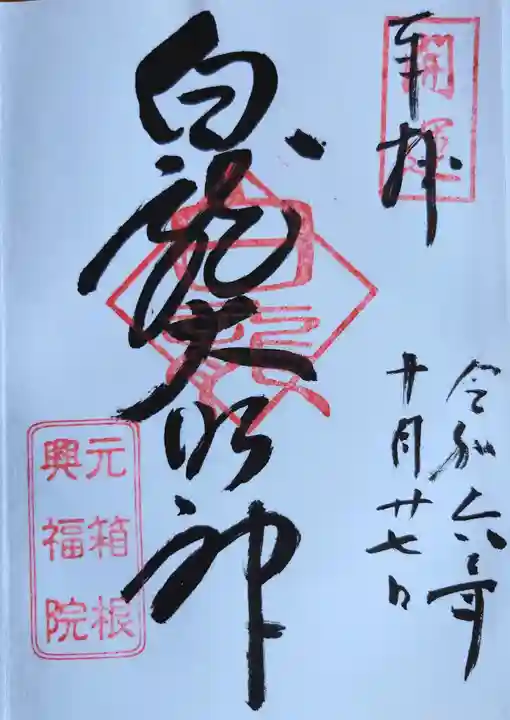 開運
奉拝
令和六年
十月廿七日
白龍大明神
元箱根
興福院